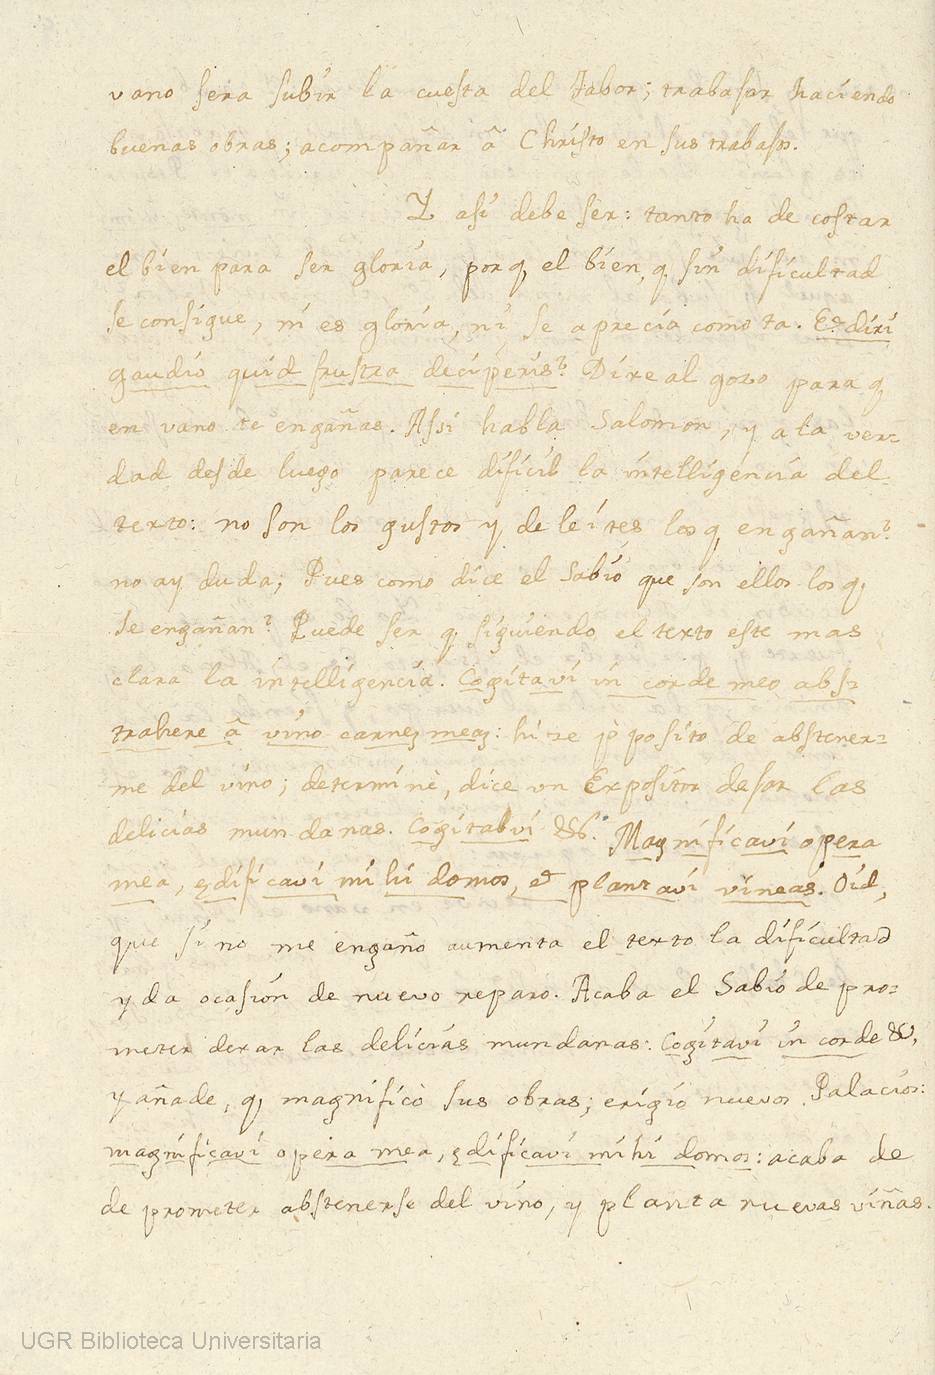 vano sera subir la cuesta del Tabor; trabajar haciendo
buenas obras; acompañar â Christo en sus trabajos.
Y asi debe ser: tanto ha de costar
el bien para ser gloria, porq̃ el bien, q̃ sin dificultad
se consigue, ni es gloria, ni se aprecia como ta. Et dixi
gaudio quid frustra deciperis? Dixe al gozo para q̃
en vano te engañas. Assi habla Salomon, y a la ver=
dad desde luego parece dificil la intelligencia del
texto: no son los gustos y deleites los q̃ engañan?
no ay duda; Pues como dice el Sabio que son ellos los q̃
se engañan? Puede ser q̃ siguiendo el texto este mas
clara la intelligencia. Cogitavi in corde meo abs=
trahere â vino carnem meam: hize p̱posito de abstener=
me del vino; determinè, dice un Expositor dejar las
delicias mundanas. Cogitabvi &c. Magnificavi opera
mea, ędificavi mihi domos, et plantavi vineas. Oid,
que si no me engaño aumenta el texto la dificultad
y da ocasion de nuevo reparo. Acaba el Sabio de pro=
meter dexar las delicias mundanas: Cogitavi in corde &c,
y añade, q̃ magnificò sus obras; erigio nuevos Palacios:
magnificavi opera mea, ędificavi mihi domos: acaba de
de prometer abstenerse del vino, y planta nuevas viñas.
UGR Biblioteca Universitaria